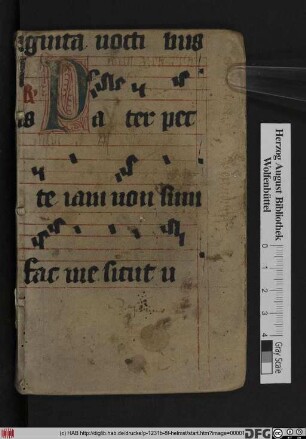 ginta noctibus
R Pater pec
te iam non sum
fac me sicut u
Herzog August Bibliothek
Wolfenbüttel
0 1 2 3 4
Gray Scale
(c) HAB http://diglib.hab.de/drucke/p-1231b-8f-helmst/start.htm?image=00001
DFG